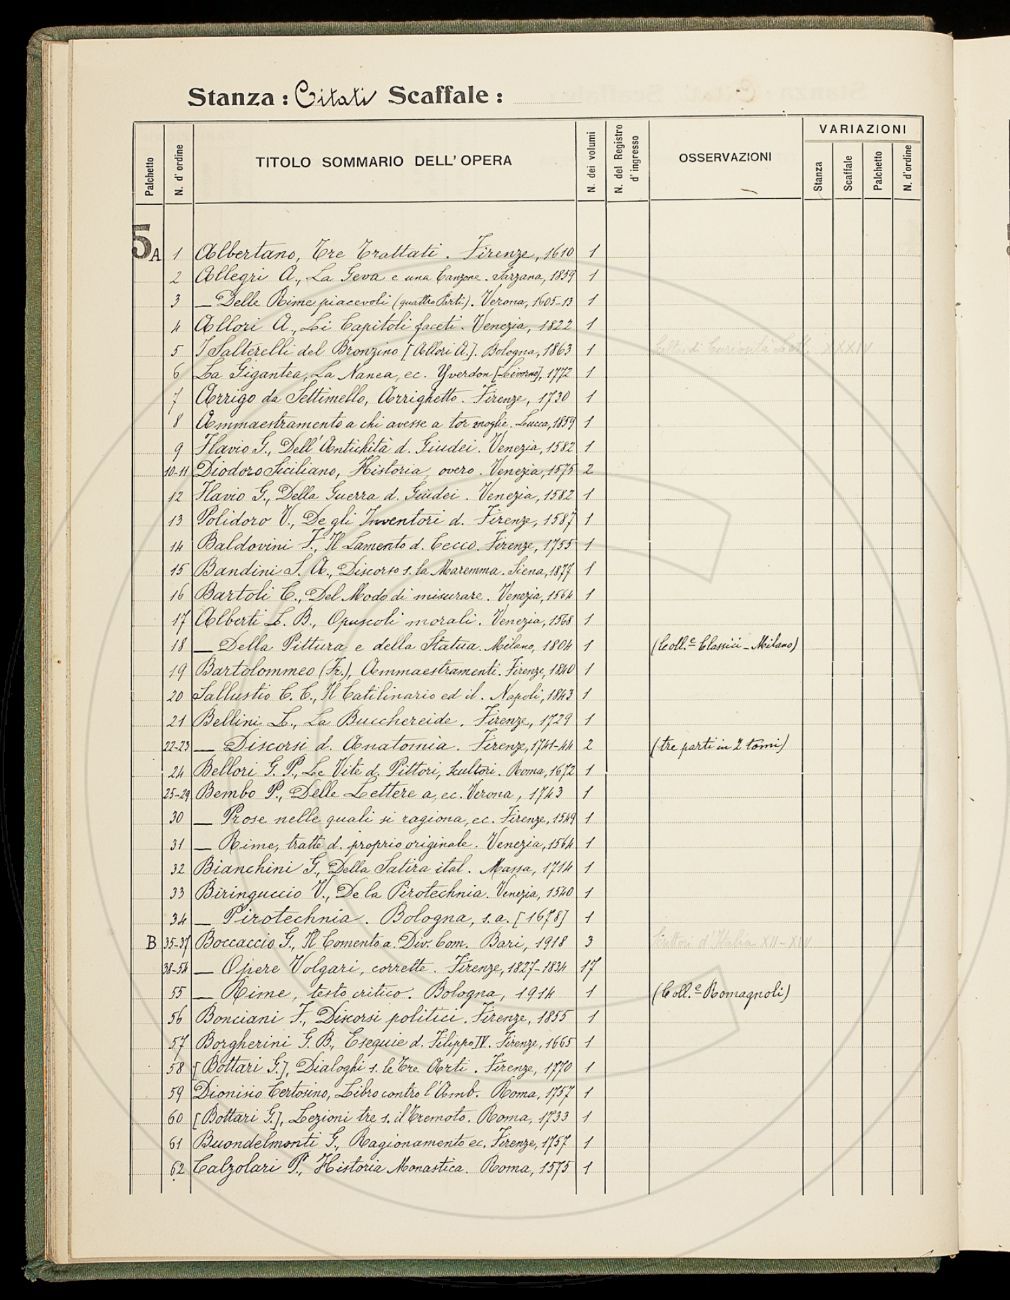 Stanza: Citati Scaffale:
Palchetto N. d'ordine TITOLO SOMMARIO DELL'OPERA N. dei volumi N. del Registro d'ingresso OSSERVAZIONI VARIAZIONI Stanza Scaffale Palchetto N. d'ordine
5A 1 Albertano, Tre Trattati. Firenze, 1610 1
2 Allegri A., La Geva e una Canzone. Sarzana, 1859 1
3 — Delle Rime piacevoli (quattro Parti). Verona, 1605-13 1
4 Allori A., Li Capitoli faceti. Venezia, 1822 1
5 I Salterelli del Bronzino [Allori A.]. Bologna, 1863 1 XXXIV
6 La Gigantea, La Nanea, ec. Yverdon [Livorno], 1772 1
7 Arrigo da Settimello, Arrighetto. Firenze, 1730 1
8 Ammaestramento a chi avesse a tor moglie. Lucca, 1859 1
9 Flavio G., Dell'Antichità d. Giudei. Venezia, 1582 1
10-11 Diodoro Siciliano, Historia, overo. Venezia, 1575 2
12 Flavio G., Della Guerra d. Giudei. Venezia, 1582 1
13 Polidoro V., De gli Inventori d. Firenze, 1587 1
14 Baldovini F., Il Lamento d. Cecco. Firenze, 1755 1
15 Bandini S. A., Discorso s. la Maremma. Siena, 1877 1
16 Bartoli C., Del Modo di misurare. Venezia, 1564 1
17 Alberti L. B., Opuscoli morali. Venezia, 1568 1
18 — Della Pittura e della Statua. Milano, 1804 1 (Coll.e Classici - Milano)
19 Bartolommeo (Fr.), Ammaestramenti. Firenze, 1840 1
20 Sallustio C. C., Il Catilinario ed il. Napoli, 1843 1
21 Bellini L., La Bucchereide. Firenze, 1729 1
22-23 — Discorsi d. Anatomia. Firenze, 1741-44 2 (tre parti in 2 tomi)
24 Bellori G. P., Le Vite d. Pittori, Scultori. Roma, 1672 1
25-29 Bembo P., Delle Lettere a, ec. Verona, 1743
30 — Prose nelle quali si ragiona, ec. Firenze, 1549 1
31 — Rime, tratte d. proprio originale. Venezia, 1564 1
32 Bianchini G., Della Satira ital. Massa, 1714 1
33 Biringuccio V., De la Pirotechnia. Venezia, 1540 1
34 — Pirotechnia. Bologna, s.a. [1678] 1
B 35-37 Boccaccio G., Il Comento a. Div. Com. Bari, 1918 3 Scrittori d'Italia XII-XIV
38-54 — Opere Volgari, corrette. Firenze, 1827-1834 17
55 — Rime, testo critico. Bologna, 1914 1 (Coll.e Romagnoli)
56 Bonciani F., Discorsi politici. Firenze, 1855 1
57 Borgherini G. B., Esequie d. Filippo IV. Firenze, 1665 1
58 [Bottari G.], Dialoghi s. le Tre Arti. Firenze, 1770 1
59 Dionisio Certosino, Libro contro l'Amb. Roma, 1757 1
60 [Bottari G.], Lezioni tre s. il Tremoto. Roma, 1733 1
61 Buondelmonti G., Ragionamento ec. Firenze, 1757 1
62 Calzolari P., Historia Monastica. Roma, 1575 1